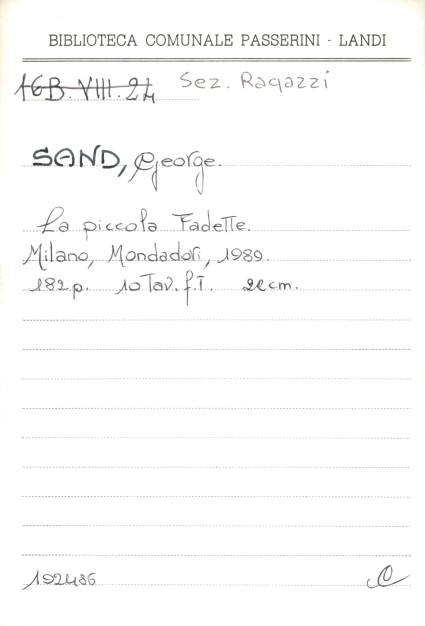 BIBLIOTECA COMUNALE PASSERINI - LANDI
16B. VIII. 24 Sez. Ragazzi
SAND, George.
La piccola Fadette.
Milano, Mondadori, 1989.
182 p. 10 Tav. f.T. 22 cm.
192486